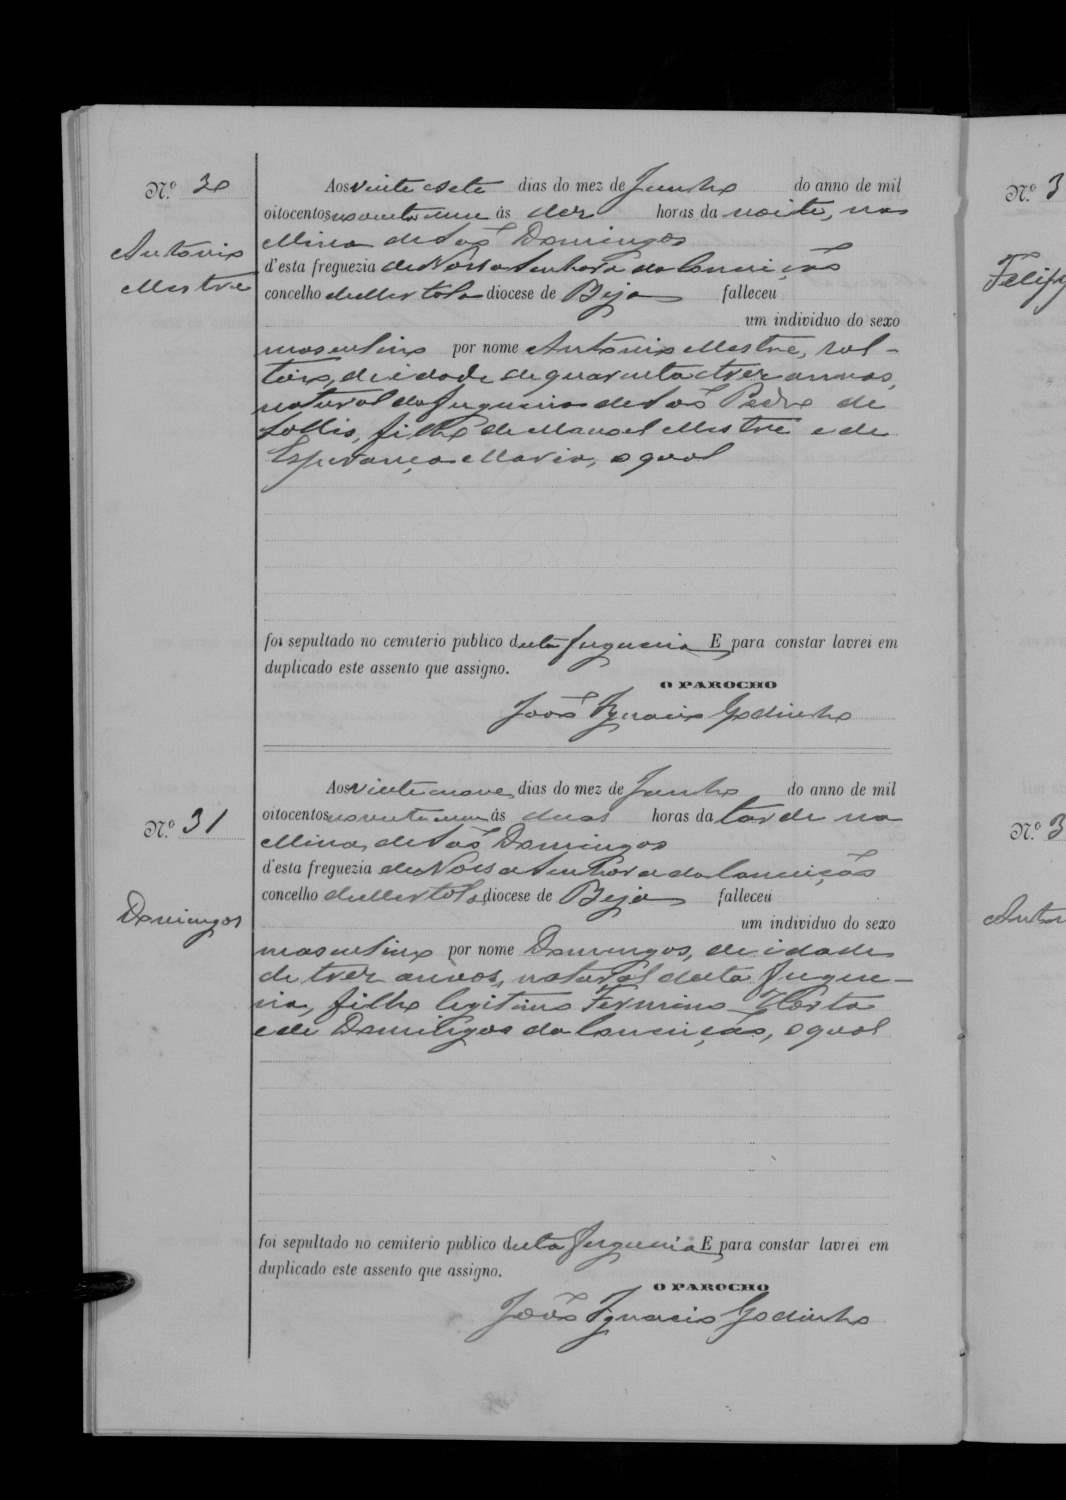 Nº 30
Antonio
Mestre
Aos vinte e sete dias do mez de Junho do anno de mil
oitocentos noventa e um ás dez horas da noite, na
Mina de São Domingos
d'esta freguezia de Nossa Senhora da Conceição
concelho de Mertola diocese de Beja falleceu
um individuo do sexo
masculino por nome Antonio Mestre, sol-
teiro, de idade de quarenta e trez annos,
natural da freguezia de São Pedro de
Sollis, filho de Manoel Mestre e de
Esperança Maria, o qual
foi sepultado no cemiterio publico d'esta freguezia E para constar lavrei em
duplicado este assento que assigno.
O PAROCHO
João Ignacio Godinho
Nº 31
Domingos
Aos vinte e nove dias do mez de Junho do anno de mil
oitocentos noventa e um ás duas horas da tarde na
Mina de São Domingos
d'esta freguezia de Nossa Senhora da Conceição
concelho de Mertola, diocese de Beja falleceu
um individuo do sexo
masculino por nome Domingos, de idade
de trez annos, natural desta fregue-
zia, filho legitimo Fermino Horta
e de Domingas da Conceição, o qual
foi sepultado no cemiterio publico d'esta freguezia E para constar lavrei em
duplicado este assento que assigno.
O PAROCHO
João Ignacio Godinho
Nº 3
Nº 3